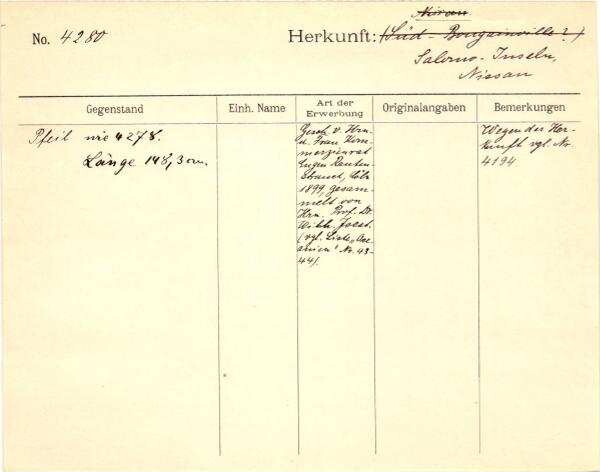 Nissan
No. 4280 Herkunft: (Süd-Bougainville?)
Salomo-Inseln,
Nissan
Gegenstand
Einh. Name
Art der
Erwerbung
Originalangaben
Bemerkungen
Pfeil wie 4278.
Länge 148,3 cm.
Gesch. v. Hrn.
u. Frau Kom-
merzienrat
Eugen Rauten-
strauch, Cöln
1899, gesam-
melt von
Hrn. Prof. Dr.
Wilh. Joest.
(vgl. Liste „Oze-
anien" Nr. 43-
44).
Wegen der Her-
kunft vgl. Nr.
4194